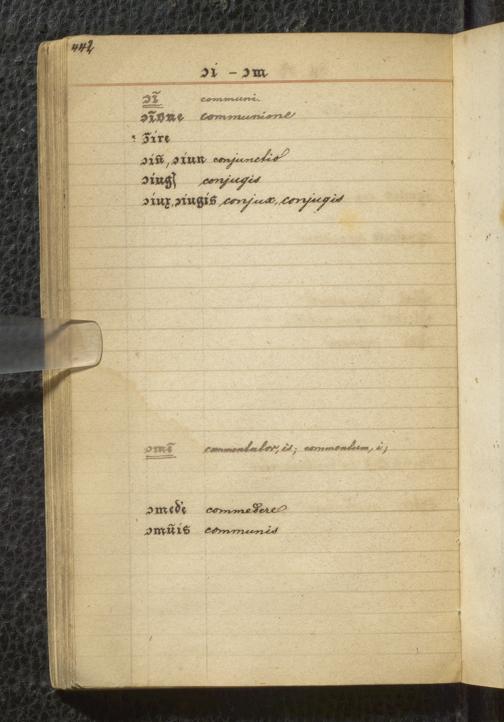 442
ɔi – ɔm
ɔi̅ communi.
ɔi̅one communione
ɔ̅ire
ɔiu̅, ɔiun conjunctio
ɔiug conjugis
ɔiux, ɔiugis conjux, conjugis
ɔme̅ commentator, is; commentum, i;
ɔmede̅ commedere
ɔmu̅is communis